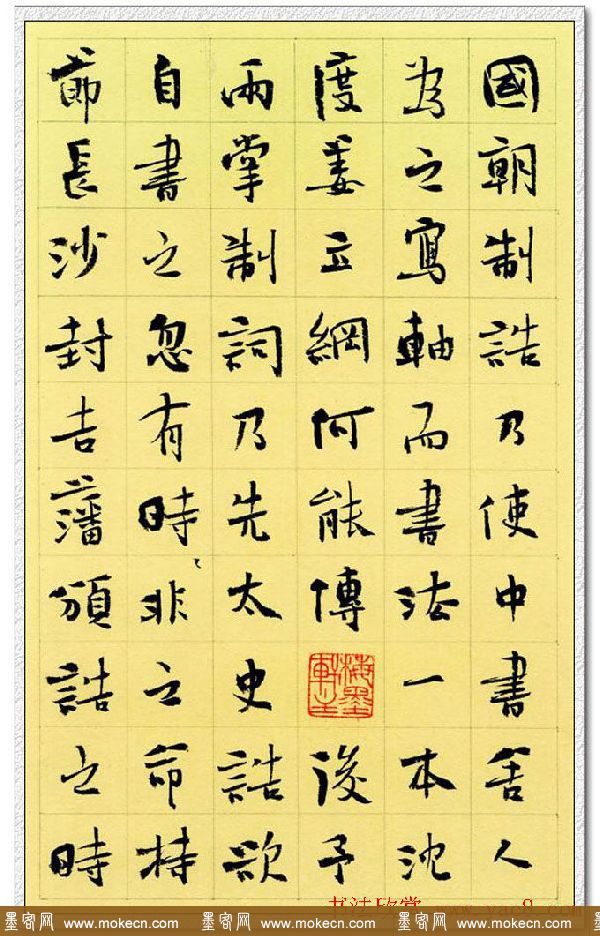 國朝制誥乃使中書舍人
為之寫軸而書法一本沈
度姜立綱何能傳後予
兩掌制詞乃先太史誥欲
自書之忽有時非之命持
節長沙封吉藩頒誥之時
书法欣赏 www.yac8.com
墨客网 www.mokecn.com 墨客网 www.mokecn.com 墨客网 www.mokecn.com